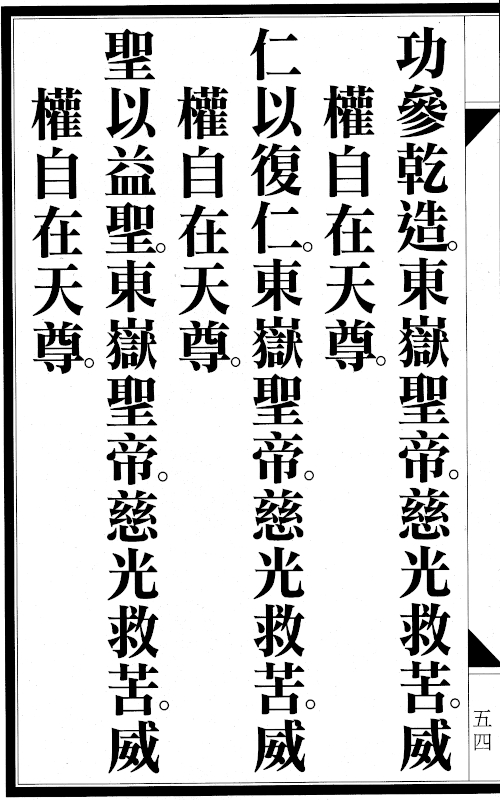 功參乾造。東嶽聖帝。慈光救苦。威
權自在天尊。
仁以復仁。東嶽聖帝。慈光救苦。威
權自在天尊。
聖以益聖。東嶽聖帝。慈光救苦。威
權自在天尊。
五四